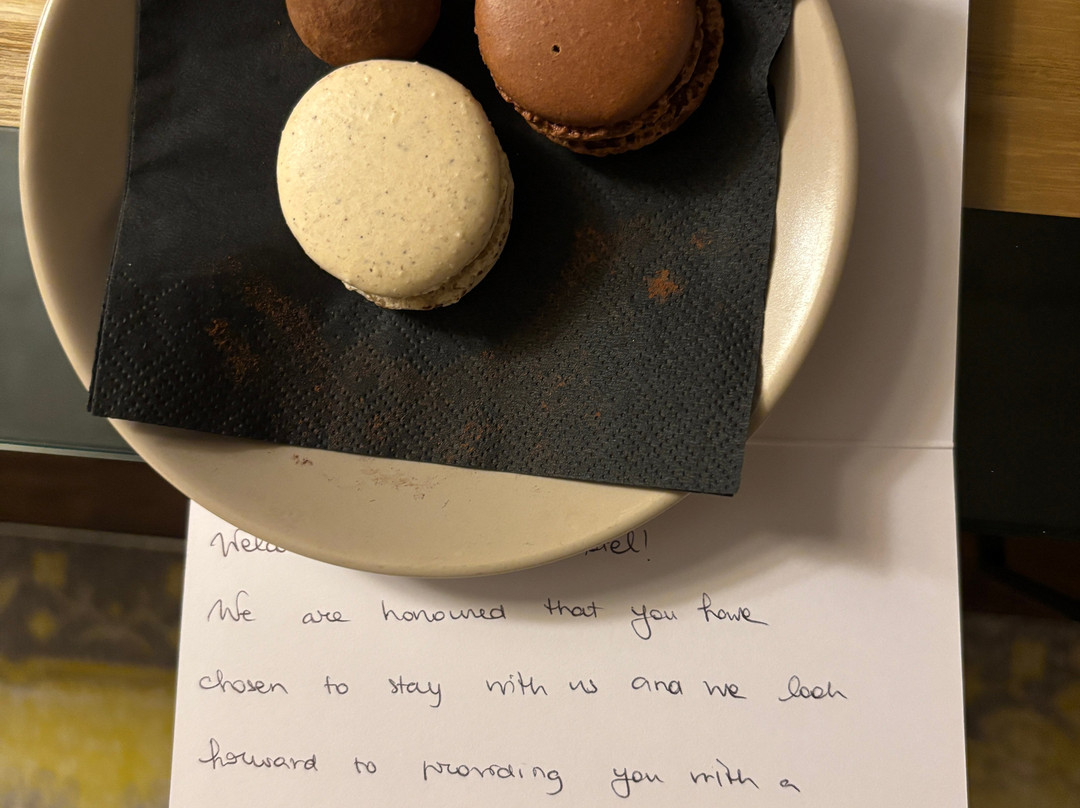 We are honoured that you have
chosen to stay with us and we look
forward to providing you with a